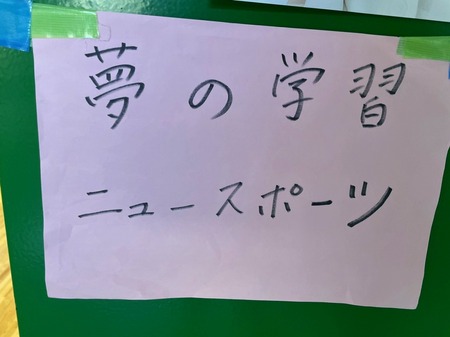 夢の学習
ニュースポーツ